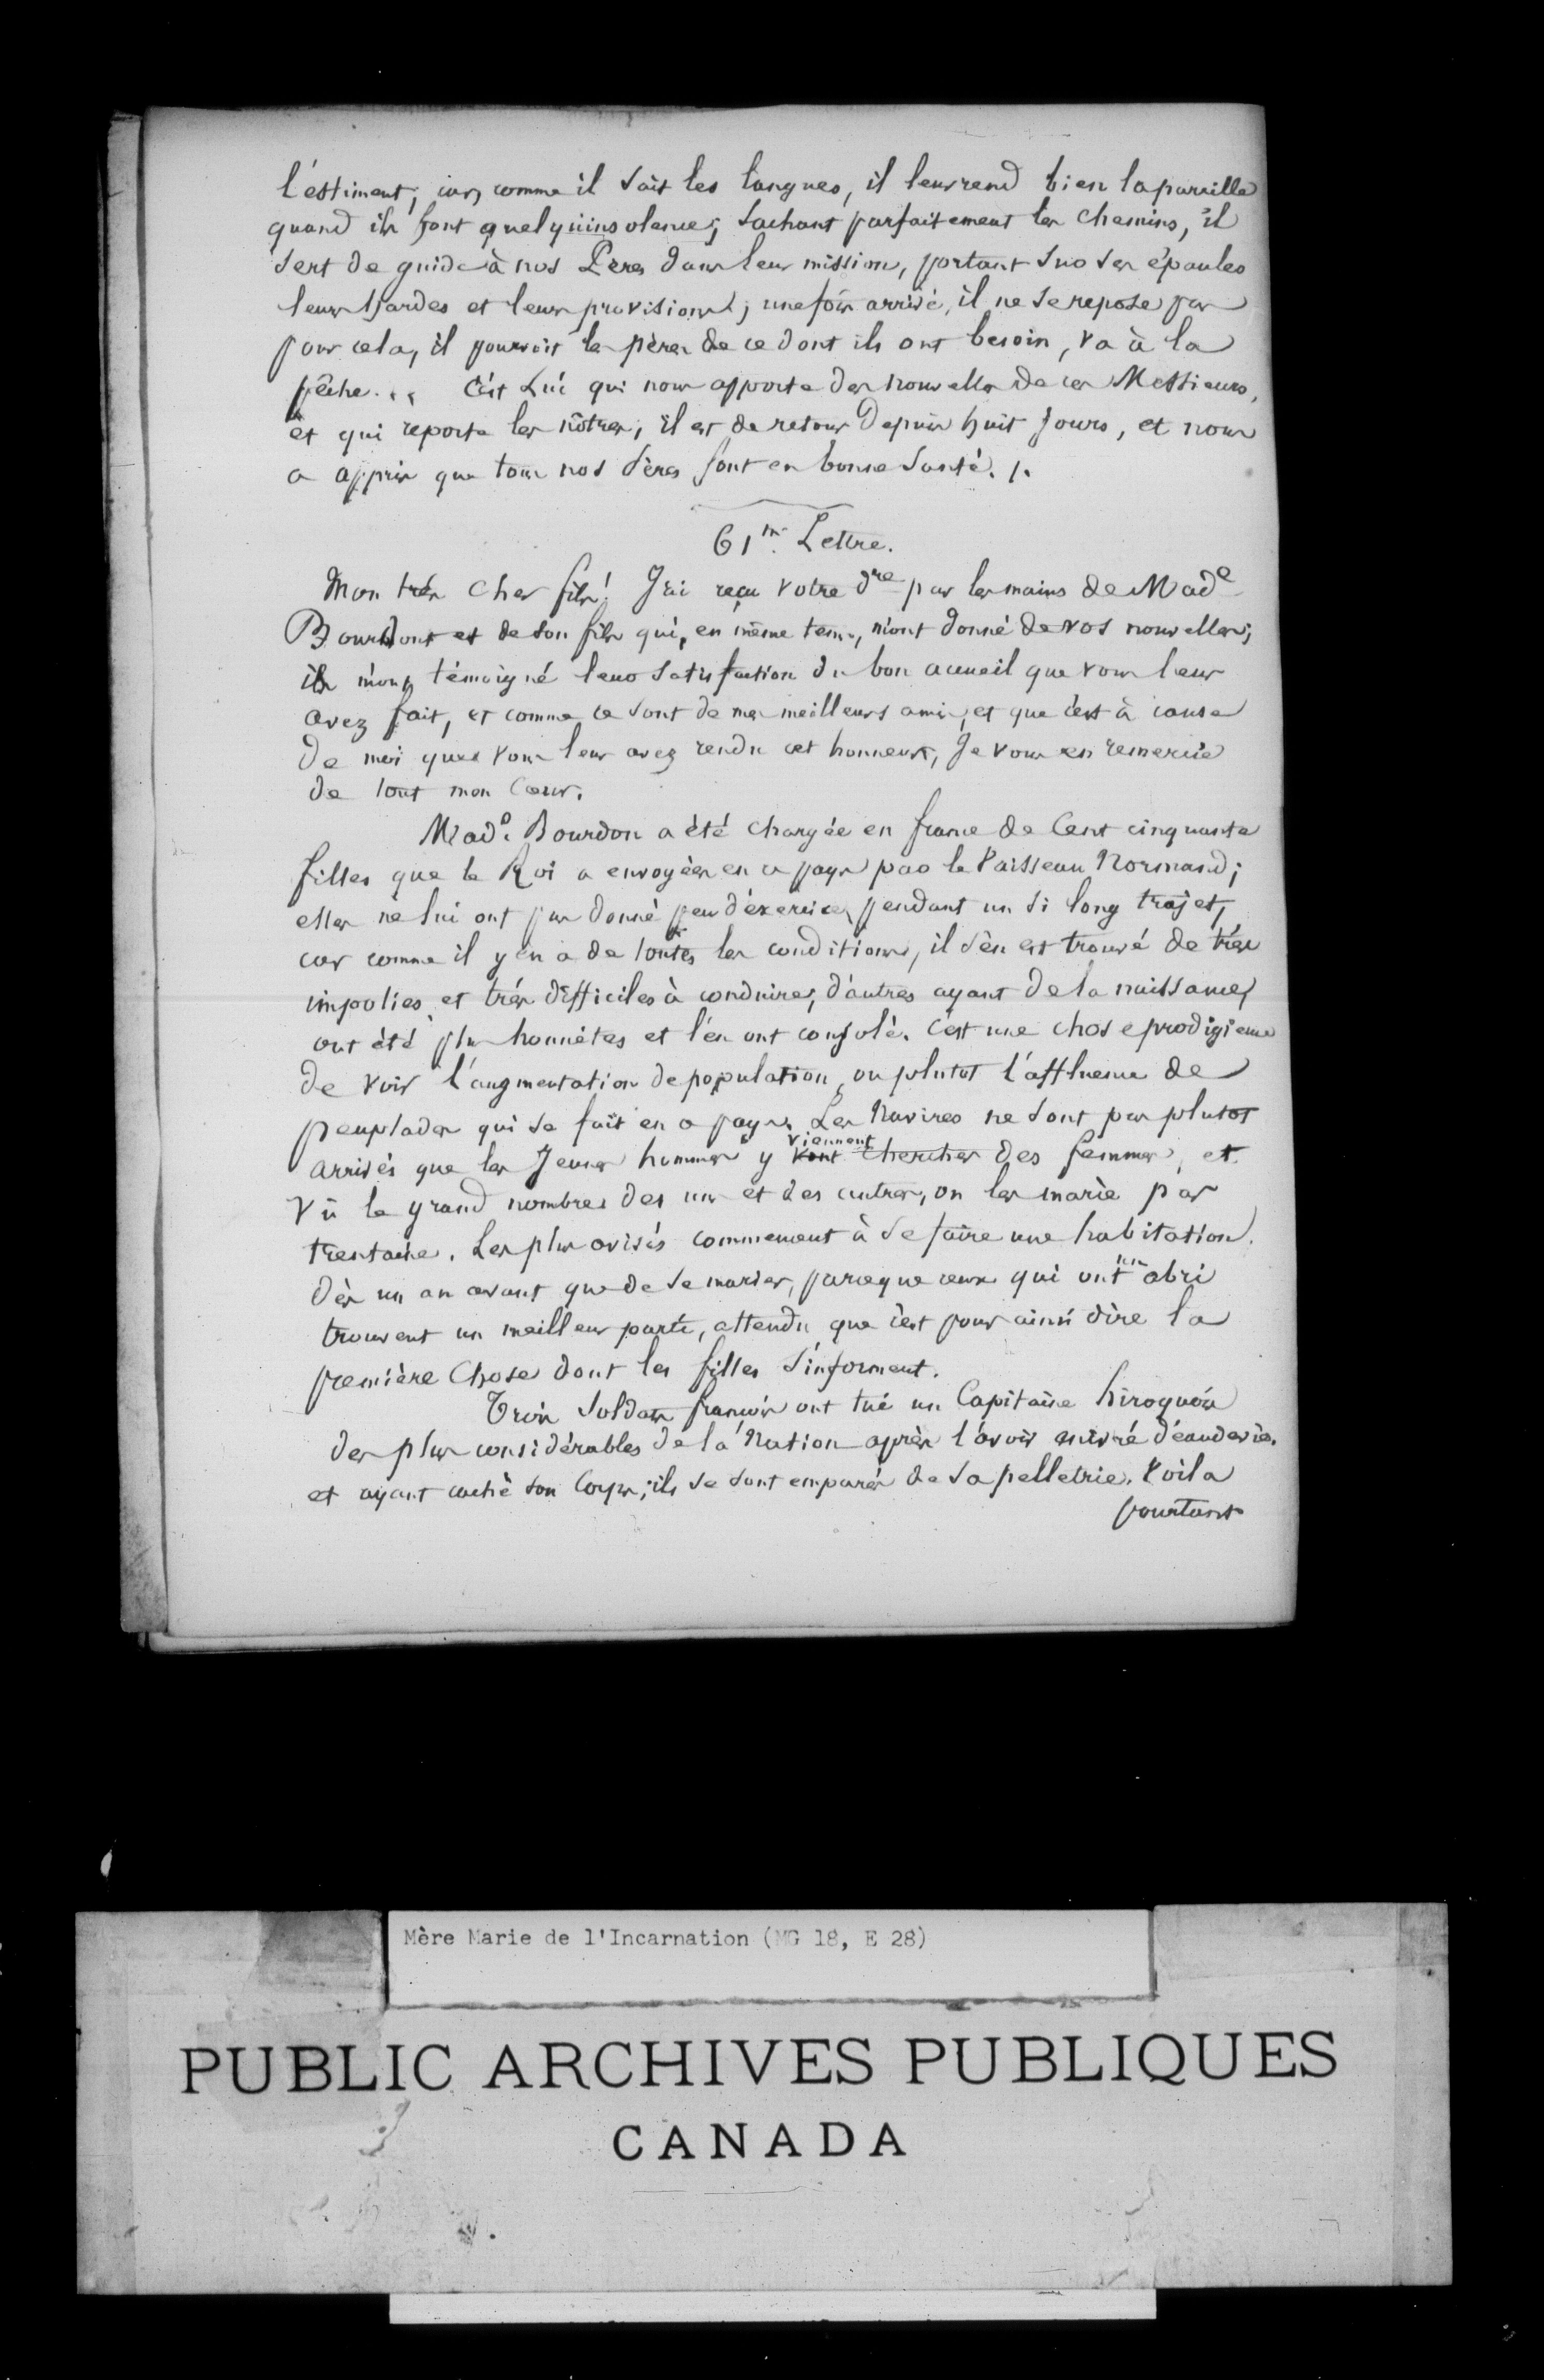 l'estiment; car, comme il sait les langues, il leur rend bien la pareille
quand ils font quelqu'insolence; sachant parfaitement les chemins, il
sert de guide à nos Pères dans leur mission, portant sur ses épaules
leurs hardes et leurs provisions; une fois arrivé, il ne se repose pas
pour cela, il pourvoit les pères de ce dont ils ont besoin, va à la
pêche... C'est Lui qui nous apporte des nouvelles de ces Messieurs,
et qui reporte les nôtres; il est de retour depuis huit Jours, et nous
a appris que tous nos Pères sont en bonne santé. /.
61me. Lettre.
Mon très cher fils! J'ai reçu votre dre par les mains de Made
Bourdont et de son fils qui, en même tems, m'ont donné de vos nouvelles;
ils m'ont témoigné leur satisfaction du bon accueil que vous leur
avez fait, et comme ce sont de mes meilleurs amis, et que c'est à cause
de moi que vous leur avez rendu cet honneur, Je vous en remercie
de tout mon Coeur.
Made. Bourdon a été chargée en france de Cent cinquante
filles que le Roi a envoyées en ce pays par le Vaisseau Normand;
elles ne lui ont pas donné peu d'exercice, pendant un si long trajet,
car comme il y en a de toutes les conditions, il s'en est trouvé de très
impolies, et très difficiles à conduire; d'autres ayant de la naissance,
ont été plus honnêtes et l'en ont consolé. C'est une chose prodigieuse
de voir l'augmentation de population, ou plutot l'affluence de
peuplades qui se fait en ce pays. Les Navires ne sont pas plutot
arrivés que les Jeunes hommes y vont viennent chercher des femmes, et
vû le grand nombre des uns et des autres, on les marie par
trentaine. Les plus avisés commencent à se faire une habitation
dès un an avant que de se marier, parceque ceux qui ont un abri
trouvent un meilleur parti, attendu que c'est pour ainsi dire la
première Chose dont les filles s'informent.
Trois soldats françois ont tué un Capitaine hiroquois
des plus considérables de la Nation après l'avoir enivré d'eau de vie.
et ayant caché son Corps; ils se sont emparés de sa pelletrie. Voila
pourtant
Mère Marie de l'Incarnation (MG 18, E 28)
PUBLIC ARCHIVES PUBLIQUES
CANADA